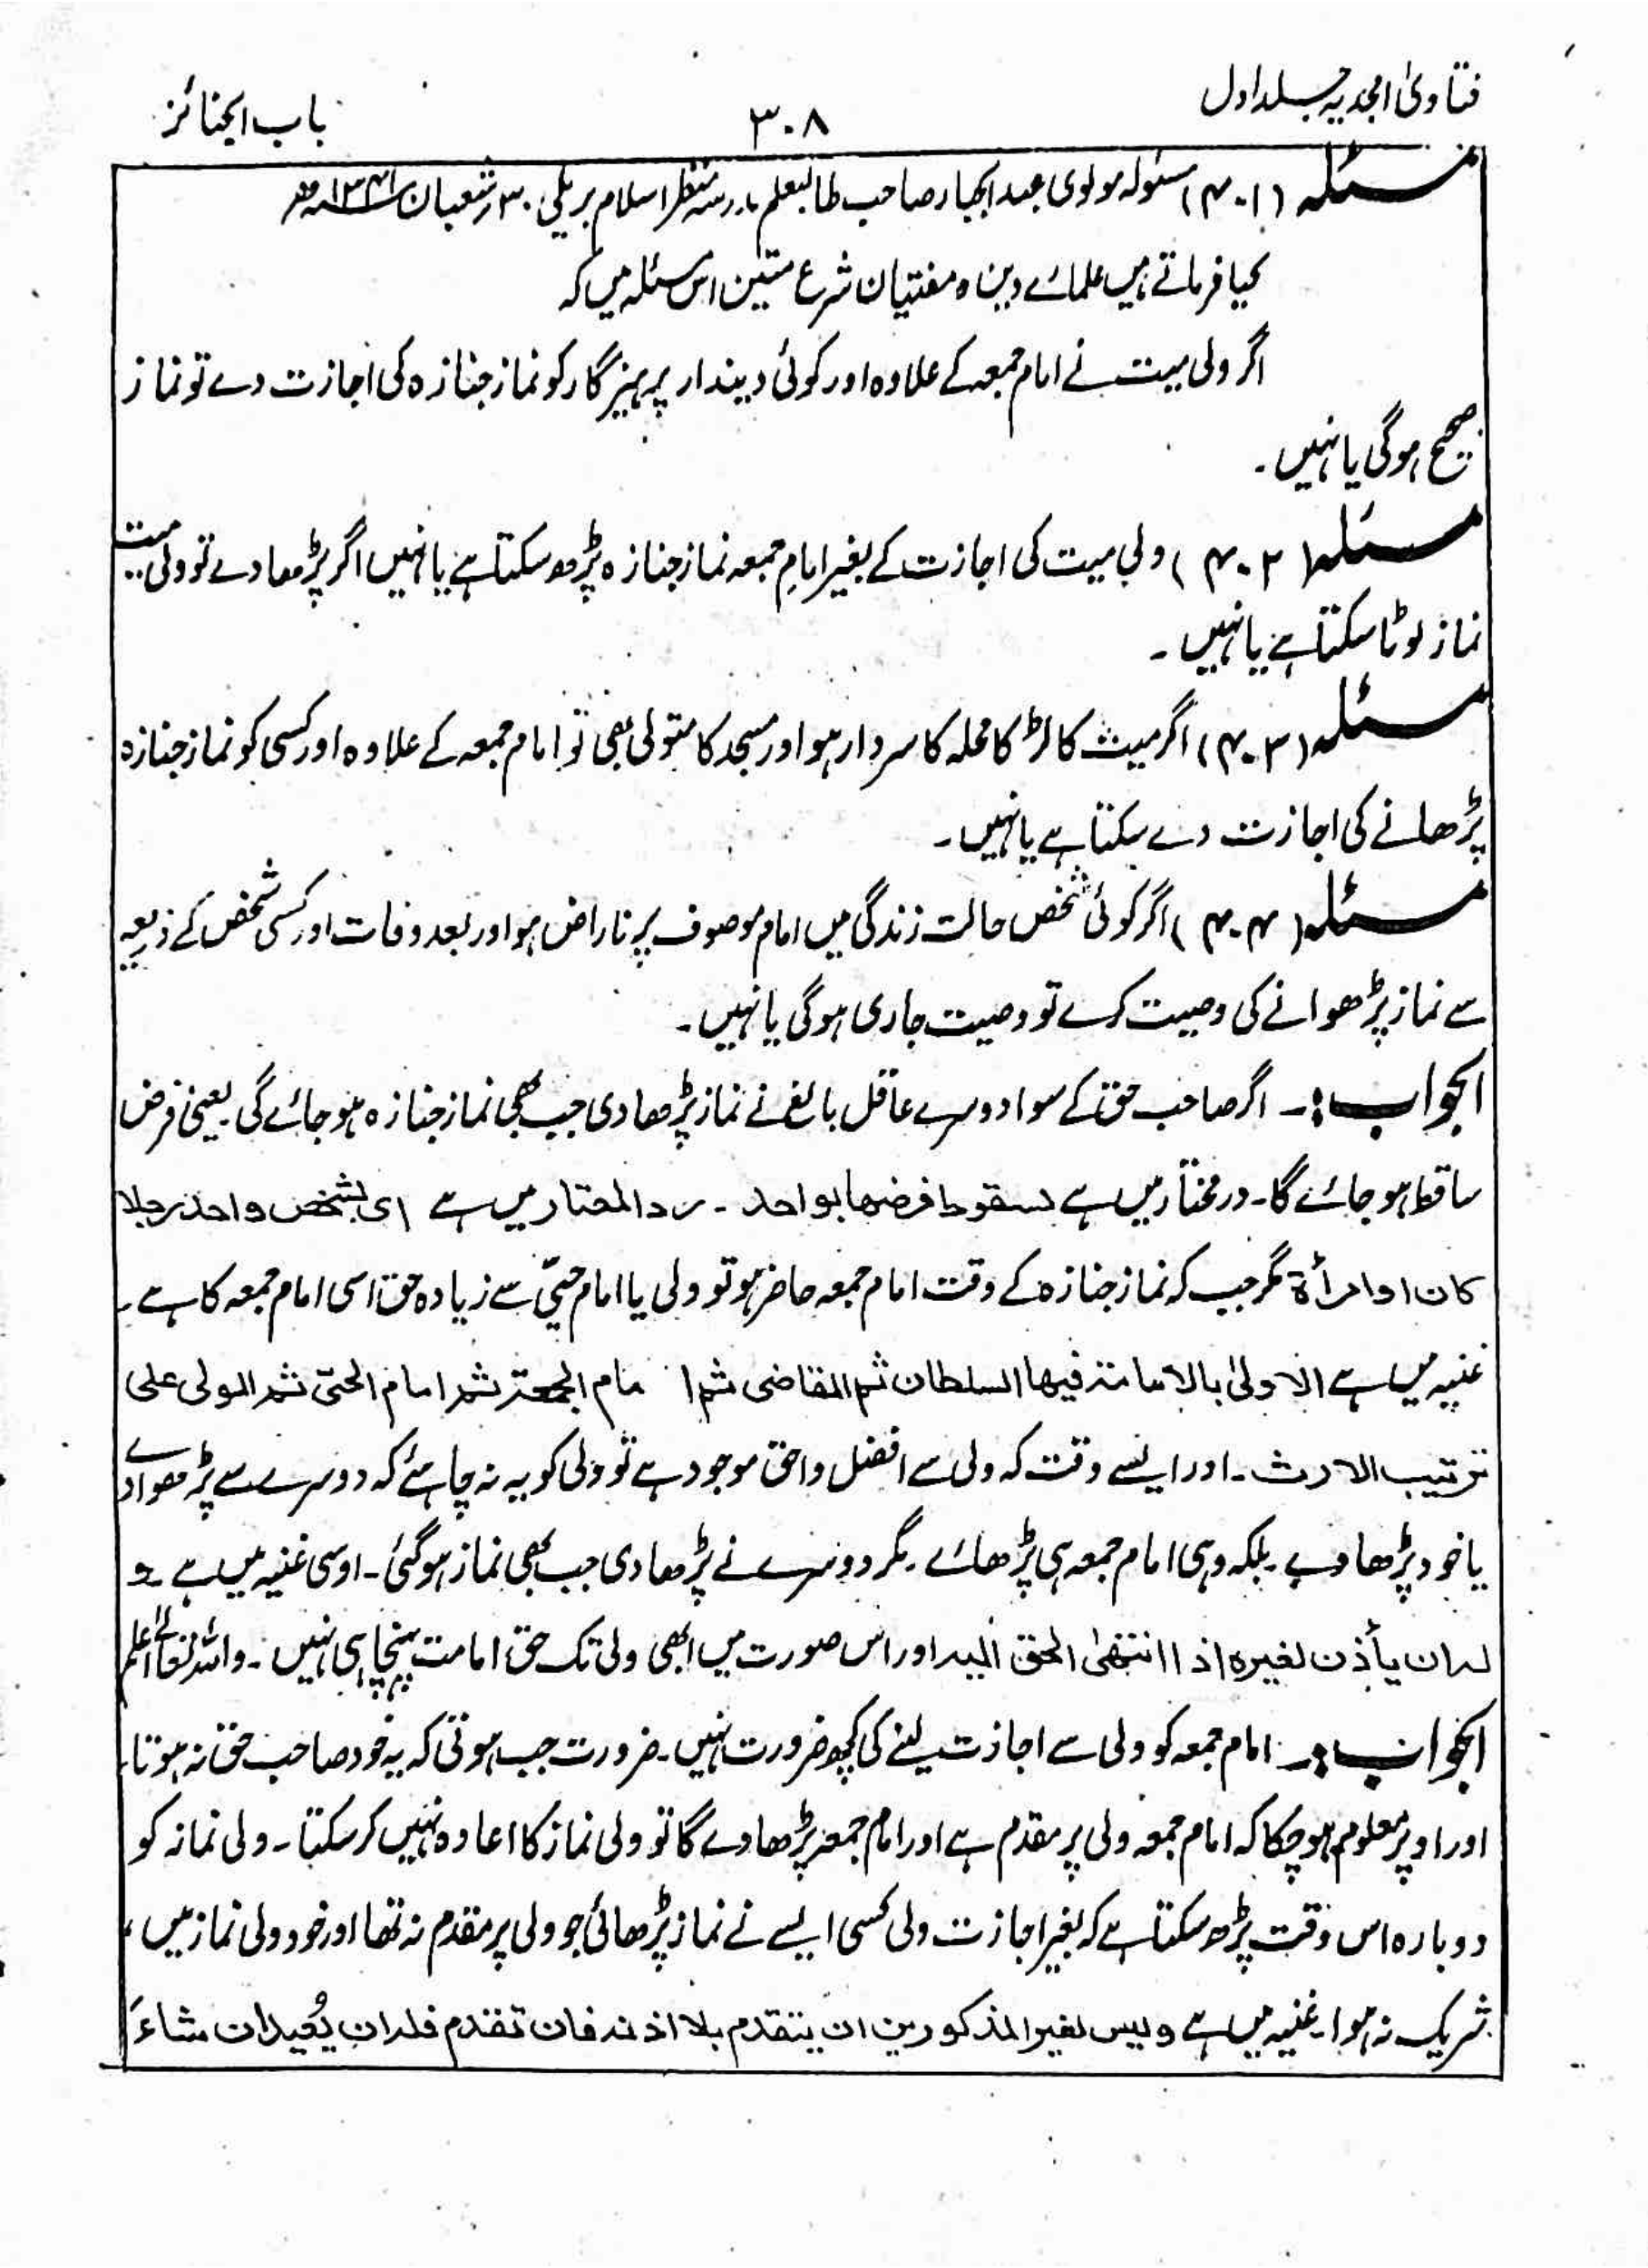 فتاویٰ امجدیہ جلد اول
۳۰۸
باب الجنائز
مسئلہ (۴۰۱) مسئولہ مولوی عبد الجبار صاحب طالبعلم مدرسہ منظر اسلام بریلی ۳۰ شعبان ۱۳۴۱ھ
کیا فرماتے ہیں علمائے دین و مفتیان شرع متین اس مسئلہ میں کہ
اگر ولی میت نے امام جمعہ کے علاوہ اور کوئی دیندار پرہیزگار کو نماز جنازہ کی اجازت دے تو نماز
صحیح ہوگی یا نہیں ۔
مسئلہ (۴۰۲) ولیِ میت کی اجازت کے بغیر امامِ جمعہ نماز جنازہ پڑھ سکتا ہے یا نہیں اگر پڑھا دے تو ولی میت
نماز لوٹا سکتا ہے یا نہیں ۔
مسئلہ (۴۰۳) اگر میت کا لڑکا محلہ کا سردار ہو اور مسجد کا متولی بھی تو امام جمعہ کے علاوہ اور کسی کو نماز جنازہ
پڑھانے کی اجازت دے سکتا ہے یا نہیں ۔
مسئلہ (۴۰۴) اگر کوئی شخص حالت زندگی میں امام موصوف پر ناراض ہو اور بعد وفات اور کسی شخص کے ذریعہ
سے نماز پڑھوانے کی وصیت کرے تو وصیت جاری ہوگی یا نہیں ۔
الجواب :۔ اگر صاحب حق کے سوا دوسرے عاقل بالغ نے نماز پڑھا دی جب بھی نماز جنازہ ہو جائے گی یعنی فرض
ساقط ہو جائے گا ۔ در مختار میں ہے لسقوط فرضھا بواحد ۔ رد المحتار میں ہے ای بشخص واحد رجلا
کان او امرأۃ مگر جب کہ نماز جنازہ کے وقت امام جمعہ حاضر ہو تو ولی یا امام حیّ سے زیادہ حق اسی امام جمعہ کا ہے ۔
غنیہ میں ہے الاولیٰ بالامامۃ فیھا السلطان ثم القاضی ثم امام الجمعۃ ثم امام الحیّ ثم الولی علی
ترتیب الارث ۔ اور ایسے وقت کہ ولی سے افضل و احق موجود ہے تو ولی کو یہ نہ چاہئے کہ دوسرے سے پڑھوا دے
یا خود پڑھا دے بلکہ وہی امام جمعہ ہی پڑھائے ۔ مگر دوسرے نے پڑھا دی جب بھی نماز ہو گئی ۔ اوسی غنیہ میں ہے و
لہ ان یأذن لغیرہ اذا انتھیٰ الحق الیہ اور اس صورت میں ابھی ولی تک حق امامت پہنچا ہی نہیں ۔ واللہ تعالیٰ اعلم
الجواب :۔ امام جمعہ کو ولی سے اجازت لینے کی کچھ ضرورت نہیں ۔ ضرورت جب ہوتی کہ یہ خود صاحب حق نہ ہوتا ۔
اور اوپر معلوم ہو چکا کہ امام جمعہ ولی پر مقدم ہے اور امام جمعہ پڑھا دے گا تو ولی نماز کا اعادہ نہیں کر سکتا ۔ ولی نماز کو
دوبارہ اس وقت پڑھ سکتا ہے کہ بغیر اجازت ولی کسی ایسے نے نماز پڑھائی جو ولی پر مقدم نہ تھا اور خود ولی نماز میں ،
شریک نہ ہوا ۔ غنیہ میں ہے ولیس لغیر المذکورین ان یتقدم بلا اذنہ فان تقدم فلہ ان یُعید ان شاءَ